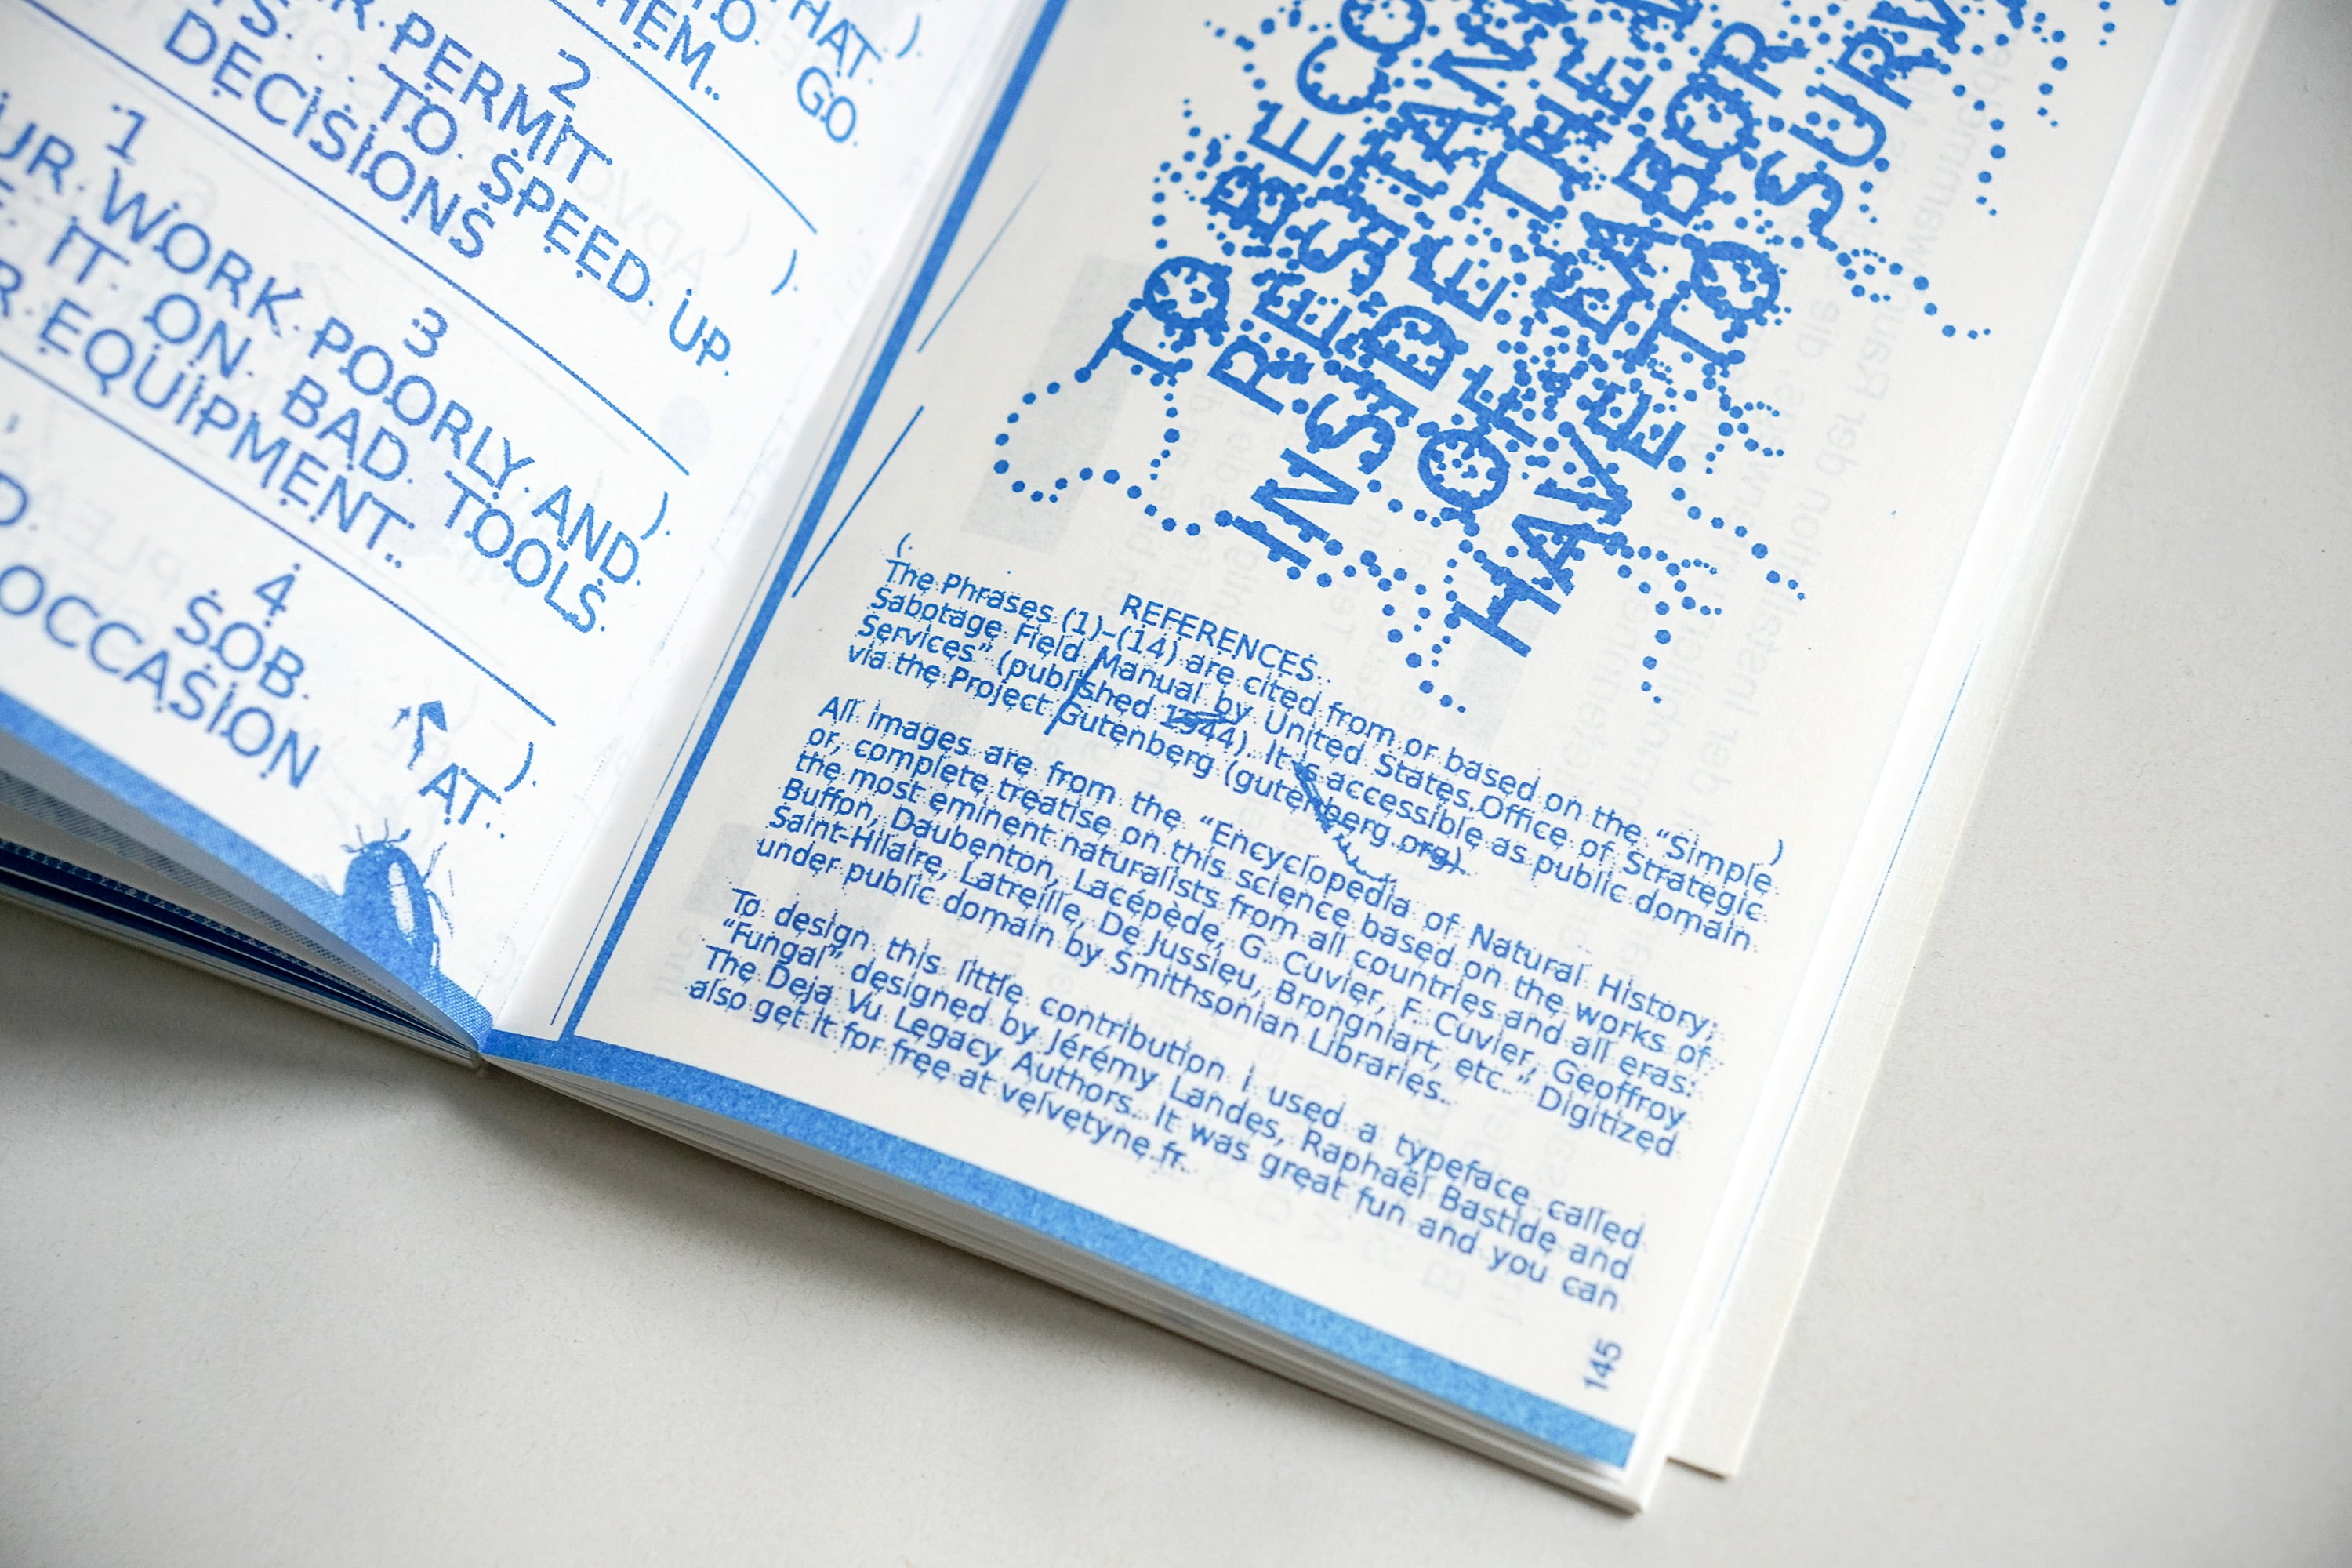 HAT.
TO.
GO.
HEM..
).
2
PERMIT
TO. SPEED. UP.
DECISIONS
)
1
UR. WORK. POORLY. AND.
IT. ON. BAD. TOOLS.
EQUIPMENT..
3
).
4
SOB.
OCCASION
AT..
).
TO BECO
INSIDE THE
OF LABOR
HAVE TO SURV
(.
REFERENCES.
The Phrases (1)–(14) are cited from or based on the “Simple
Sabotage Field Manual by United States Office of Strategic
Services” (published 1944). It is accessible as public domain
via the Project Gutenberg (gutenberg.org).
)
All images are from the “Encyclopedia of Natural History;
or, complete treatise on this science based on the works of
the most eminent naturalists from all countries and all eras:
Buffon, Daubenton, Lacépède, G. Cuvier, F. Cuvier, Geoffroy
Saint-Hilaire, Latreille, De Jussieu, Brongniart, etc.” Digitized
under public domain by Smithsonian Libraries.
To design this little contribution i used a typeface called
“Fungal” designed by Jérémy Landes, Raphaël Bastide and
The Deja Vu Legacy Authors. It was great fun and you can
also get it for free at velvetyne.fr.
145